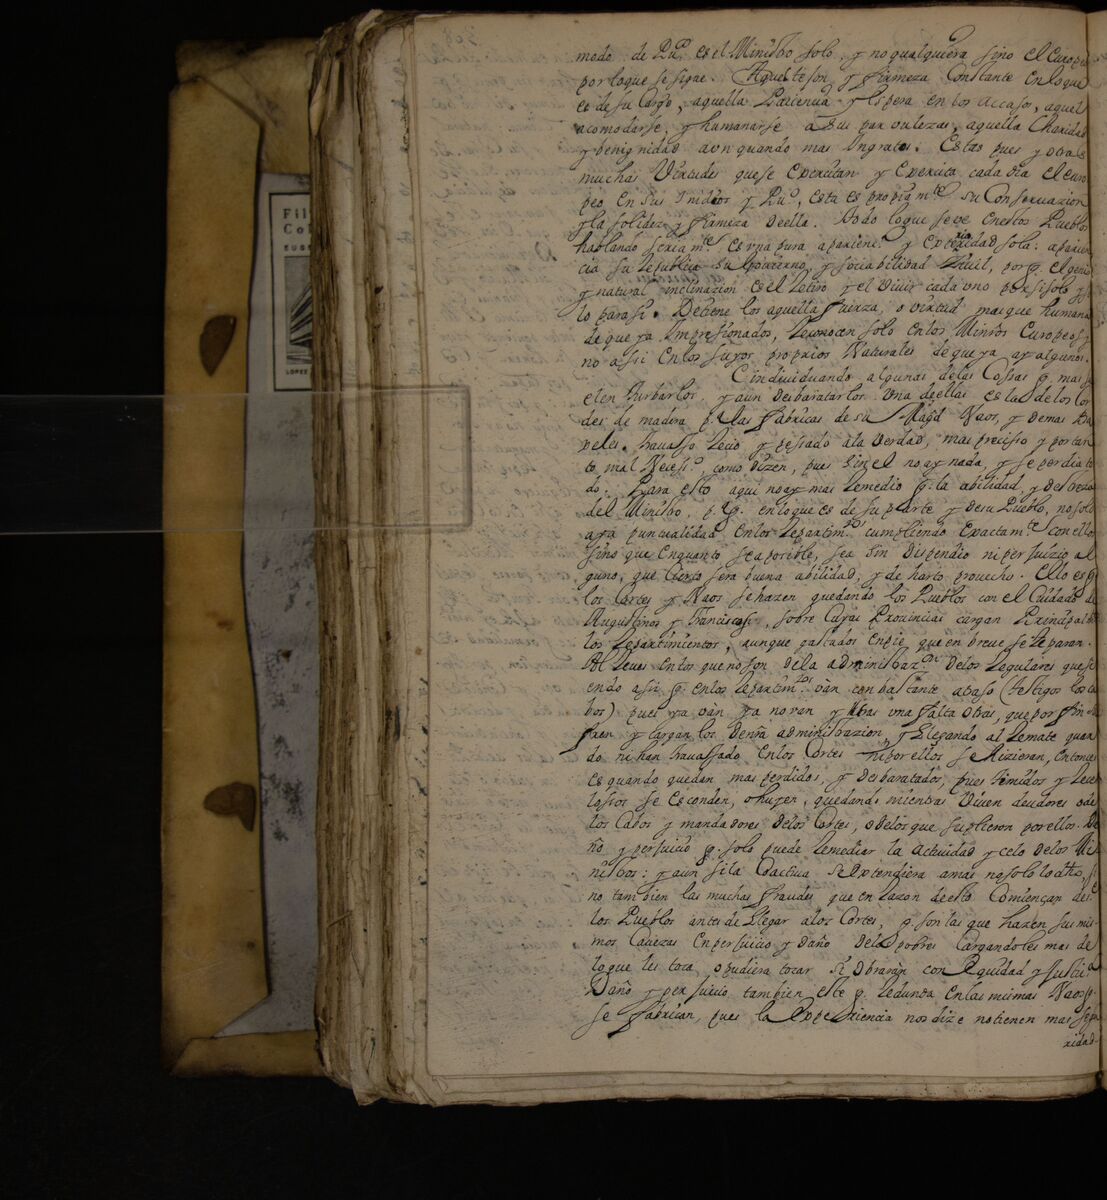 modo de Pu.º es el Ministro solo, y no qualquiera sino el Europeo
por lo que se sigue. Aquel teson, y firmeza Constante en lo que
es de su Cargo, aquella Paciencia y Espera en los accasos, aquel
acomodarse, y humanarse a sus parvulezas, aquella Charidad
y benignidad aun quando mas Ingratos. Estas pues y otras
muchas Virtudes que se executan y exercita cada dia el euro
peo en sus Inidios y Pu.º, esta es propiam.te su Conservazion
y la solidez y firmeza de ella. Todo lo que se ve en estos Pueblos
hablando seriam.te es una pura aparienc.ª y exterioridad sola: aparien
cia su Republica su Govierno, y sociabilidad Civil, por q. el genio
y natural inclinazion es el Retiro y el vivir cada uno por si solo y so
lo para si. Detiene los aquella fuerza, o virtud mas que humana
de que ya Impresionados, Reconocen solo en los Minros Europeos y
no assi en los suyos proprios Naturales de que ya ay algunos.
E individuando algunas de las Cossas q. mas s
elen turbarlos y aun desbaratarlos. Una de ellas es la de los Cor
des de madera p.ª las fabricas de su Mag.d Naos, y demas Ba
xeles. travasso Recio y pessado a la verdad, mas precisso y por tan
to mal Necess.º, como dizen, pues sin el no ay nada, y se perdia to
do. Para esto aqui no ay mas Remedio q. la abilidad, y destreza
del Ministro, p.ª q. en lo que es de su parte y de su Pueblo, no solo
aya puntualidad en los Repartim.tos cumpliendo exactam.te con ellos
sino que en quanto sea posible, sea sin dispendio ni perjuizio al
guno, que cierto sera buena abilidad, y de harto provecho. Ello es q.
los Cortes y Naos se hazen quedando los Pueblos con el Cuidado de
Augustinos y Franciscos, sobre cuyas Provincias cargan Principalm.te
los Repartimientos, aunque gastados en pie, que en breve se Reparan.
Al Reves en los que no son de la administraz.on de los Regulares que si
endo assi q. en los Repartim.tos vàn con bastante atraso (testigos los ca
bos) pues ya vàn ya no van y tras una falta otras, que por fin
traen y cargan los de mà administrazion, y Llegando al Remate quan
do ni han travassado en los Cortes ni por ellos se hizieron, entonces
es quando quedan mas perdidos, y desbaratados, pues timidos y Rece
losos se esconden, o huyen, quedando mientras viven deudores o de
los Cabos y mandadores de los Cortes, o de los que suplieron por ellos. Da
ño y perjuicio q. solo puede Remediar la actividad y celo de los Mi
nistros: y aun si la Coactiva se extendiera a mas no solo lo d.tho, si
no tambien las muchas fraudes que en Razon de esto Comiençan des.e
los Pueblos antes de Llegar a los Cortes, q. son las que hazen sus mis
mos Cavezas en perjuicio y daño de los pobres Cargandoles mas de
lo que les toca, o pudiera tocar si obraràn con Equidad y Justicia
Daño y perjuicio tambien este q. Redunda en las mismas Naos q.
se fabrican, pues la Experiencia nos dize no tienen mas segu
ridad